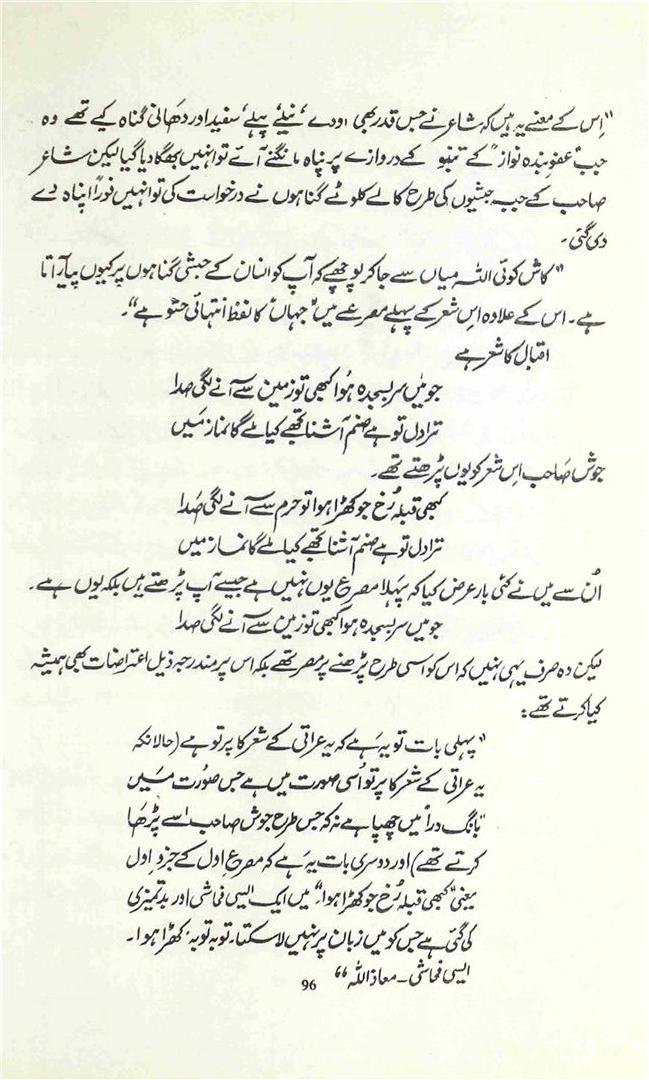 "اِس کے معنے یہ ہیں کہ شاعر نے جس قدر بھی اودے‘ نیلے‘ پیلے‘ سفید اور دھانی گناہ کیے تھے وہ
جب "عفوِ بندہ نواز" کے تمبو کے دروازے پر پناہ مانگنے آئے تو انہیں بھگا دیا گیا لیکن شاعر
صاحب کے جب حبشیوں کی طرح کالے کلوٹے گناہوں نے درخواست کی تو انہیں فوراً پناہ دے
دی گئی۔
"کاش کوئی اللہ میاں سے جا کر پوچھے کہ آپ کو انسان کے حبشی گناہوں پر کیوں پیار آتا
ہے۔ اس کے علاوہ اس شعر کے پہلے مصرعے میں "جہاں" کا لفظ انتہائی حشو ہے"۔
اقبال کا شعر ہے
جو میں سر بسجدہ ہُوا کبھی تو زمین سے آنے لگی صدا
ترا دل تو ہے صنم آشنا تجھے کیا ملے گا نماز میں
جوش صاحب اِس شعر کو یوں پڑھتے تھے۔
کبھی قبلہ رُخ جو کھڑا ہوا تو حرم سے آنے لگی صدا
ترا دل تو ہے صنم آشنا تجھے کیا ملے گا نماز میں
اُن سے میں نے کئی بار عرض کیا کہ پہلا مصرع یوں نہیں ہے جیسے آپ پڑھتے ہیں بلکہ یوں ہے۔
جو میں سر بسجدہ ہوا کبھی تو زمین سے آنے لگی صدا
لیکن وہ صرف یہی نہیں کہ اس کو اسی طرح پڑھنے پر مصر تھے بلکہ اس پر مندرجہ ذیل اعتراضات بھی ہمیشہ
کیا کرتے تھے:
"پہلی بات تو یہ ہے کہ یہ عراقی کے شعر کا پرتو ہے (حالانکہ
یہ عراقی کے شعر کا پرتو اُسی صورت میں ہے جس صورت میں
"بانگ درا" میں چھپا ہے نہ کہ جس طرح جوش صاحب اسے پڑھا
کرتے تھے) اور دوسری بات یہ ہے کہ مصرعِ اول کے جزوِ اول
یعنی "کبھی قبلہ رُخ جو کھڑا ہوا" میں ایک ایسی فحاشی اور بدتمیزی
کی گئی ہے جس کو میں زبان پر نہیں لا سکتا۔ توبہ توبہ 'کھڑا ہوا۔
ایسی فحاشی۔ معاذاللہ"
96